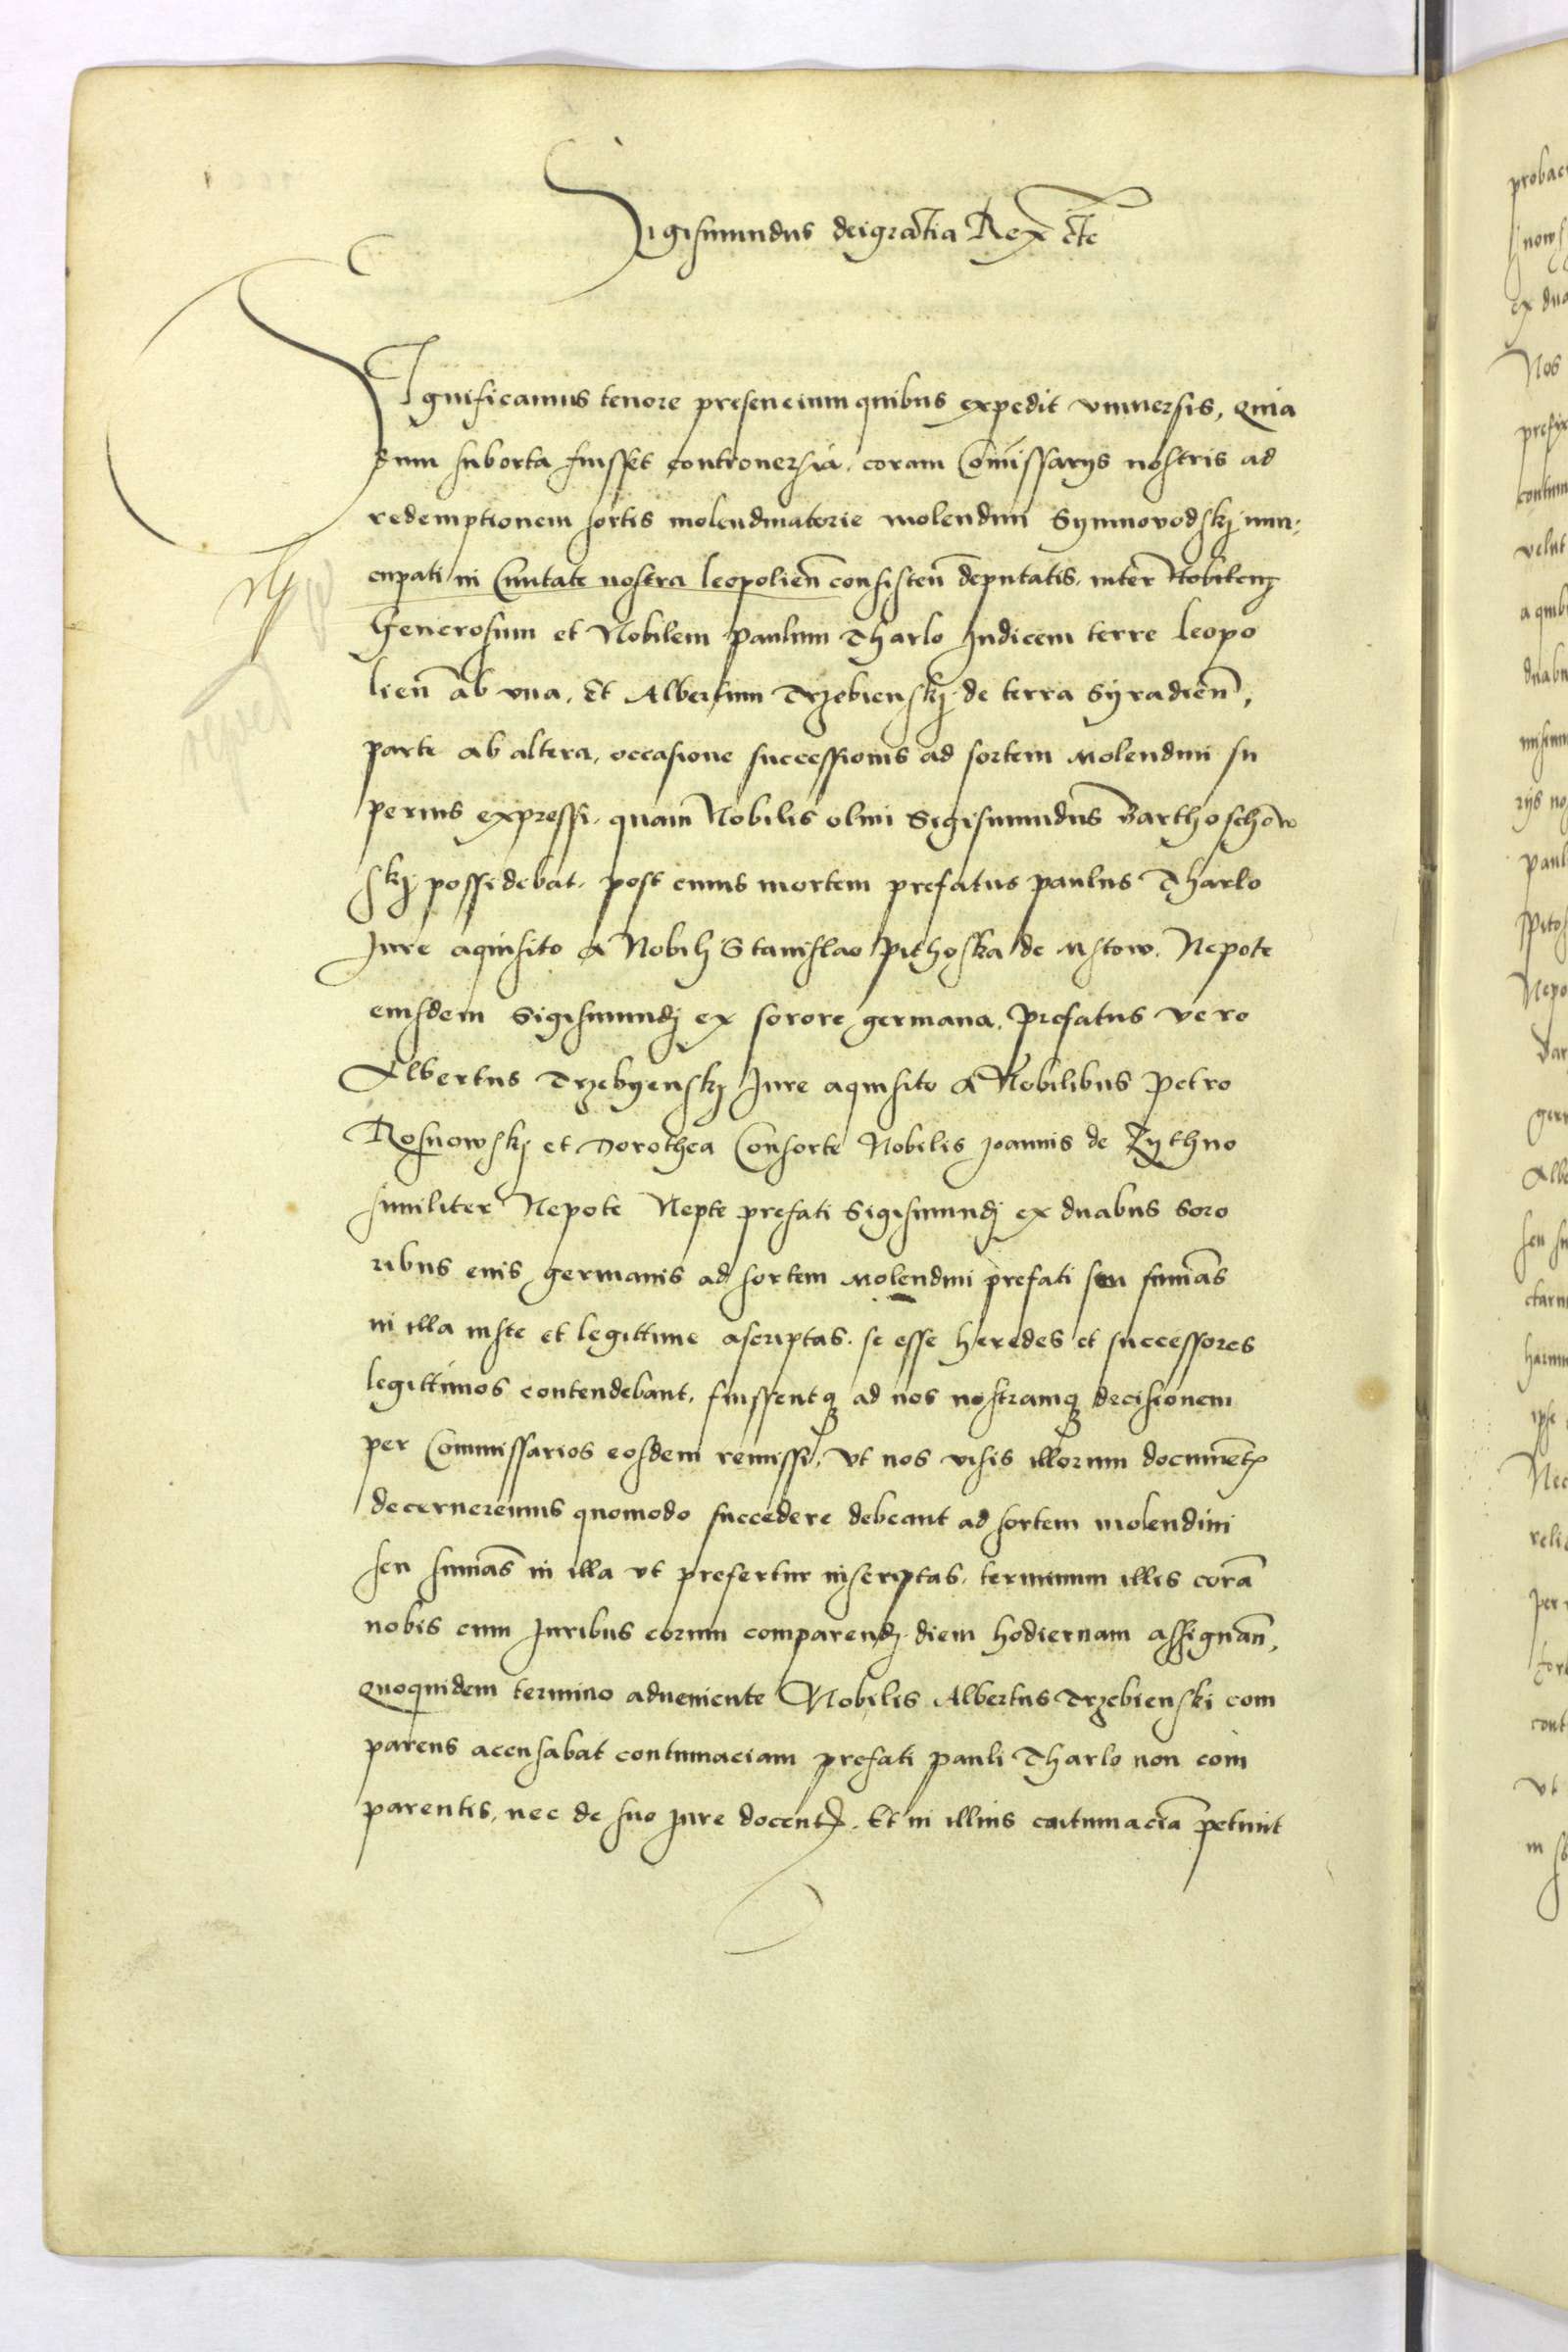 Sigismundus deigratia Rex etc
Significamus tenore presencium quibus expedit vniuersis, quia
dum suborta fuisset controuersia, coram Comissarys nostris ad
redemptionem sortis molendinatorie molendini Symnovodskj nun-
cupati in Ciuitate nostra leopolien consisten deputatis, inter Nobilem
Generosum et Nobilem paulum Tharlo Judicem terre leopo
lien ab vna, Et Albertum Trzebienskj de terra Syradien,
parte ab altera, occasione successionis ad sortem Molendini su
perius expressi, quam Nobilis olim Sigismundus Barthoschow
skj possidebat, post cuius mortem prefatus paulus Tharlo
Jure aquisito A Nobilj Stanislao pithoska de Mstow, Nepote
eiusdem Sigismundj ex sorore germana, prefatus vero
Albertus Trzebyenskj Jure aquisito A Nobilibus petro
Rosnowskj et Dorothea Consorte Nobilis Joannis de Zythno
similiter Nepote Nepte prefati Sigismundj ex duabus soro
ribus eius germanis ad sortem Molendini prefati seu sumas
in illa iuste et legittime ascriptas, se esse heredes et successores
legittimos contendebant, fuissentq ad nos nostramq decisionem
per Commissarios eosdem remissi, vt nos visis illorum documet
decerneremus quomodo succedere debeant ad sortem molendini
seu sumas in illa vt prefertur inscriptas, terminum illis cora
nobis cum Juribus eorum comparendj diem hodiernam assignan,
quoquidem termino adueniente Nobilis Albertus Trzebienski com
parens accusabat contumaciam prefati pauli Tharlo non com
parentis, nec de suo Jure docent, Et in illius cotumacia petiuit